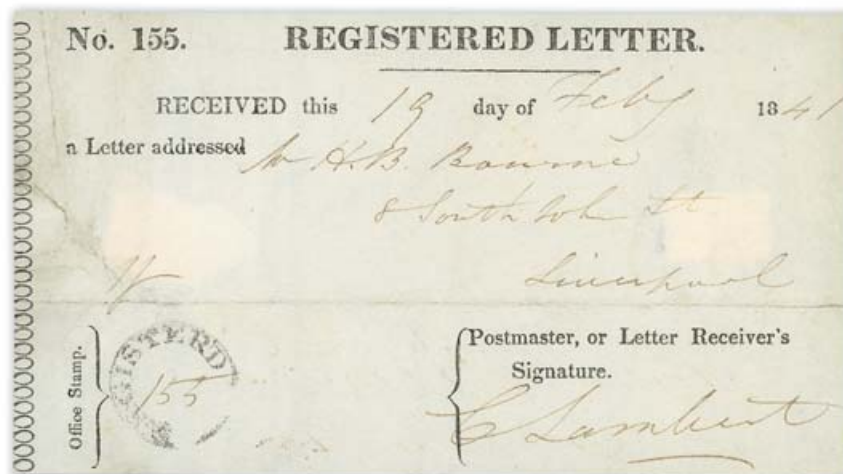 No. 155. REGISTERED LETTER.
RECEIVED this 19 day of Feby 1841
a Letter addressed Mr H.B. Bourne
8 South John St
Liverpool
Office Stamp.
REGISTERD
155
Postmaster, or Letter Receiver's
Signature.
C Lambert